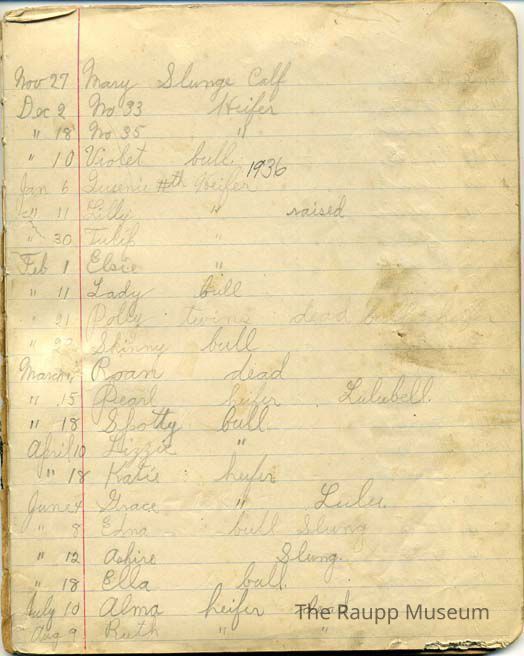 Nov 27 Mary Slunge Calf
Dec 2 No 33 Heifer
" 18 No 35 "
" 10 Violet bull
1936
Jan 6 Heifer
" 11 Lilly " raised
" 30 Tulip "
Feb 1 Elsie "
" 11 Lady bull
" 21 Polly twins dead bull heifer
" 22 Skinny bull
March Roan dead
" 15 Pearl heifer Lulubell
" 18 Spotty bull
April 10 Lizzie "
" 18 Katie heifer
June 4 Grace " Lulu
" 8 Edna bull Slung
" 12 Ashire Slung
" 18 Ella bull
July 10 Alma heifer
Aug 9 Ruth " "
The Raupp Museum